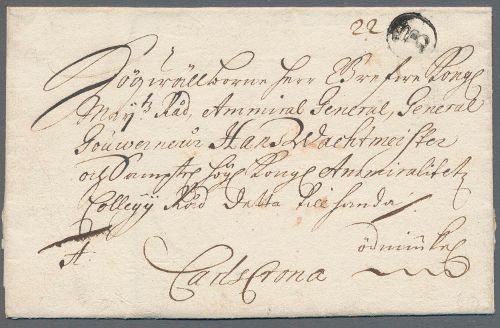 22
Högwälborne herr Grefwe Kongl
May:tz Råd, Ammiral General, General
Gouwerneur Hans Wachtmeister
och Samptl. höge Kongl Ammiralitetz
Collegij Råd Detta till handa
ödmiukel
Carlscrona